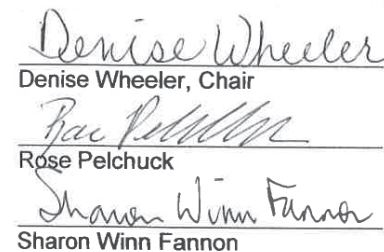 Denise Wheeler
Denise Wheeler, Chair
Rose Pelchuck
Sharon Winn Fannon
Sharon Winn Fannon